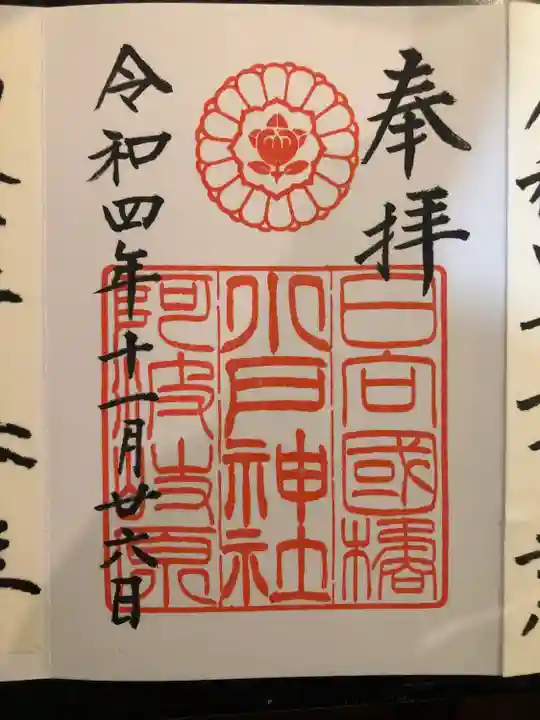 奉拝
日向國橘
小戸神社
阿波岐原
令和四年十一月廿六日